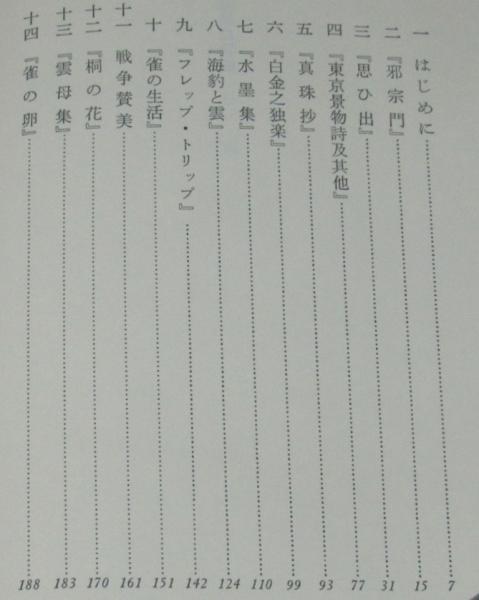 一 はじめに 7
二 『邪宗門』 15
三 『思ひ出』 31
四 『東京景物詩及其他』 77
五 『真珠抄』 93
六 『白金之独楽』 99
七 『水墨集』 110
八 『海豹と雲』 124
九 『フレップ・トリップ』 142
十 『雀の生活』 151
十一 戦争賛美 161
十二 『桐の花』 170
十三 『雲母集』 183
十四 『雀の卵』 188